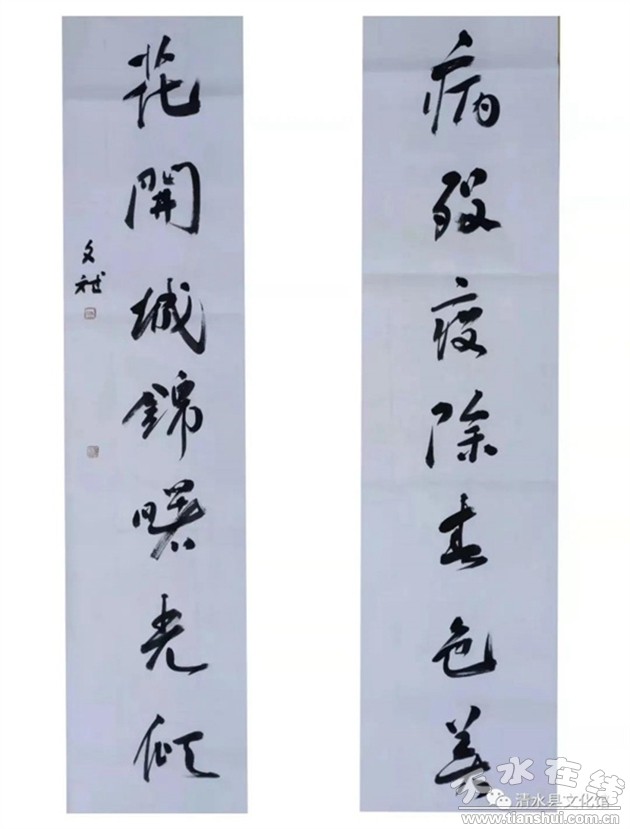 病殁疫除春色美
花開城錦曙光倾
文斌
天水在线
清水县文化馆
www.tianshui.com.cn